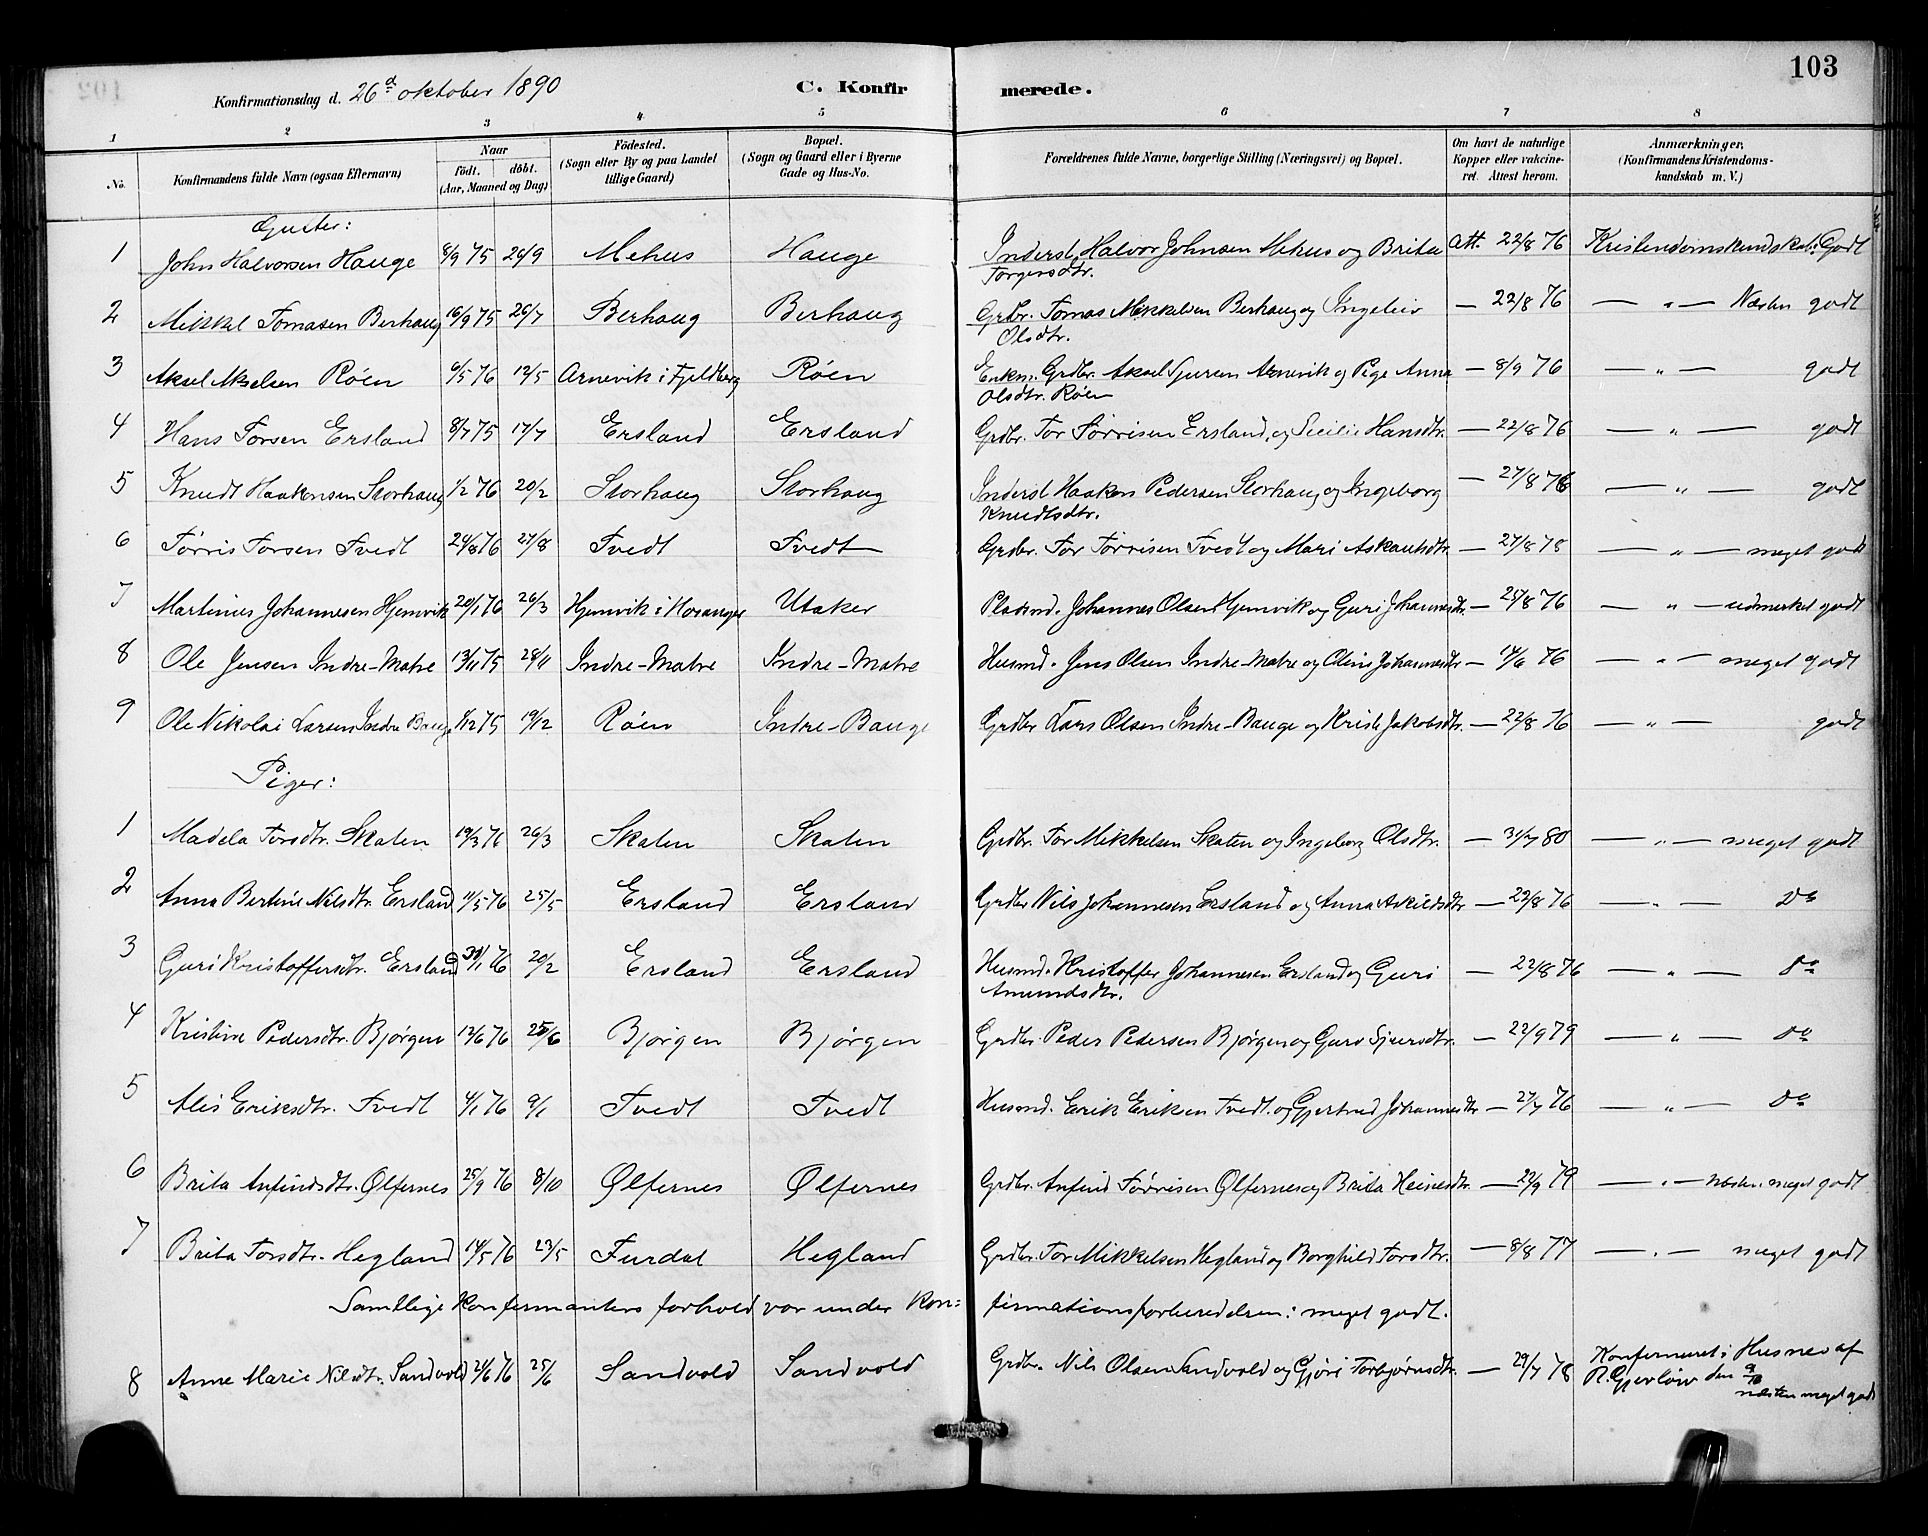 103
Konfirmationsdag d. 26de oktober 1890
C. Konfirmerede.
1 2 3 4 5 6 7 8
No. Konfirmandens fulde Navn (ogsaa Efternavn) Naar født. døbt. (Aar, Maaned og Dag) Fødested. (Sogn eller By og paa Landet tillige Gaard) Bopæl. (Sogn og Gaard eller i Byerne Gade og Hus-No. Forældrenes fulde Navne, borgerlige Stilling (Næringsvei) og Bopæl. Om havt de naturlige Kopper eller vakcineret. Attest herom. Anmærkninger. (Konfirmandens Kristendomskundskab m. V.)
Gutter:
1 John Halvorsen Hauge 8/9 75 26/9 Mehus Hauge Inderst Halvor Johnsen Mehus og Brita Torgersdtr. Att. 22/8 76 Kristendomskundskab: Godt
2 Mikkel Tomasen Berhaug 16/9 75 26/7 Berhaug Berhaug Grdbr. Tomas Mikkelsen Berhaug og Ingeleiv Olsdtr. — 22/8 76 — " — Næsten godt
3 Aksel Akselsen Røen 6/5 76 12/5 Arnevik i Fjeldberg Røen Enkm. Grdbr. Aksel Sjursen Arnevik og Pige Anna Olsdtr. Røen — 8/9 76 — " — godt
4 Hans Torsen Ersland 8/7 75 17/7 Ersland Ersland Grdbr. Tor Tørrisen Ersland, og Secilie Hansdtr. — 22/8 76 — " — godt
5 Knudt Haakensen Storhaug 1/2 76 20/2 Storhaug Storhaug Inderst Haaken Pedersen Storhaug og Ingeborg Knudtsdtr. — 27/8 76 — " — godt
6 Tørris Torsen Tvedt 24/8 76 27/8 Tvedt Tvedt Grdbr. Tor Tørrisen Tvedt og Mari — 27/8 78 — " — meget godt
7 Martinus Johannesen Hjemvik 20/1 76 26/3 Hjemvik i Hosanger Utaker Pladsmd. Johannes Olsen Hjemvik og Guri Johannesdtr. — 25/8 76 — " — udmerket godt
8 Ole Jensen Indre-Matre 13/11 75 28/11 Indre-Matre Indre-Matre Husmd. Jens Olsen Indre-Matre og Oline Johannesdtr. — 14/6 76 — " — meget godt
9 Ole Nikolai Larsen Indre Bauge 1/12 75 19/12 Røen Indre-Bauge Grdbr Lars Olsen Indre-Bauge og Kristi Jakobsdtr. — 22/8 76 — " — godt
Piger:
1 Madela Torsdtr. Skaten 19/3 76 26/3 Skaten Skaten Grdbr. Tor Mikkelsen Skaten og Ingeborg Olsdtr. — 31/7 80 — " — meget godt
2 Anna Bertine Nilsdtr. Ersland 11/5 76 25/5 Ersland Ersland Grdbr Nils Johannesen Ersland og Anna Askildsdtr — 22/8 76 — " — Do
3 Guri Kristoffersdtr. Ersland 30/1 76 20/2 Ersland Ersland Husmd. Kristoffer Johannesen Ersland og Guri Amundsdtr. — 22/8 76 — " — Do
4 Kristine Pedersdtr. Bjørgen 12/6 76 25/6 Bjørgen Bjørgen Grdbr. Peder Pedersen Bjørgen og Guro Sjursdtr. — 22/9 79 — " — Do
5 Alis Eriksdtr. Tvedt 4/1 76 9/1 Tvedt Tvedt Husmd. Erik Eriksen Tvedt og Gjertrud Johannesdtr — 27/7 76 — " — Do
6 Brita Anfindsdtr. Ølfernes 25/9 76 8/10 Ølfernes Ølfernes Grdbr. Anfind Tørrisen Ølfernes og Brita Heinesdtr. — 22/9 79 — " — næsten meget godt
7 Brita Torsdtr. Hegland 14/5 76 23/5 Furdal Hegland Grdbr. Tor Mikkelsen Hegland og Borghild Torsdtr. — 8/8 77 — " — meget godt
Samtlige konfirmanters forhold var under konfirmationsforberedelsen: meget godt.
8 Anne Marie Nilsdtr. Sandvold 24/6 76 25/6 Sandvold Sandvold Grdbr. Nils Olsen Sandvold og Gjøri Torbjørnsdtr. — 29/7 78 Konfirmeret i Husnes af R. Gjerløw den næsten meget godt